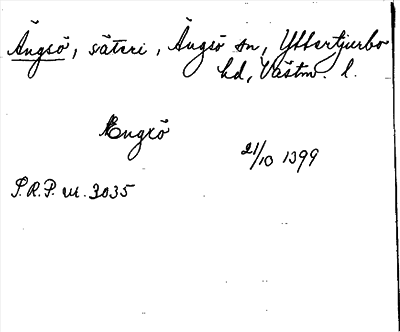 Ängsö, säteri, Ängsö sn, Yttertjurbo
hd, Västm. l.
Engsö
21/10 1399
S.R.P. nr. 3035